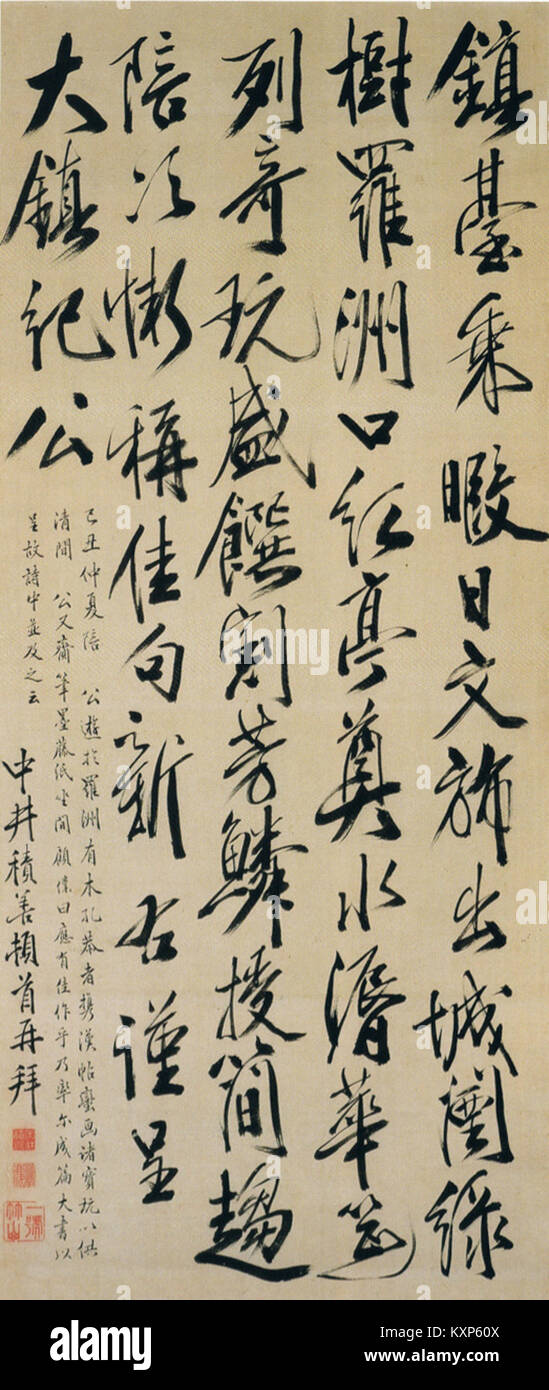 鎮臺乘暇日文旆出城闉綠
樹羅洲口紅亭奠水濱華筵
列奇玩盛饌割芳鱗授簡趨
陪次慚稱佳句新 右謹呈
大鎮記公
己丑仲夏陪 公遊於羅洲有木孔恭者攜漢帖蠻画諸寶玩以供
清閒 公又齎筆墨藤紙坐間顧僕曰應有佳作乎乃率尔成篇大書以
呈故詩中並及之云
中井積善頓首再拜
alamy
Image ID: KXP60X
www.alamy.com